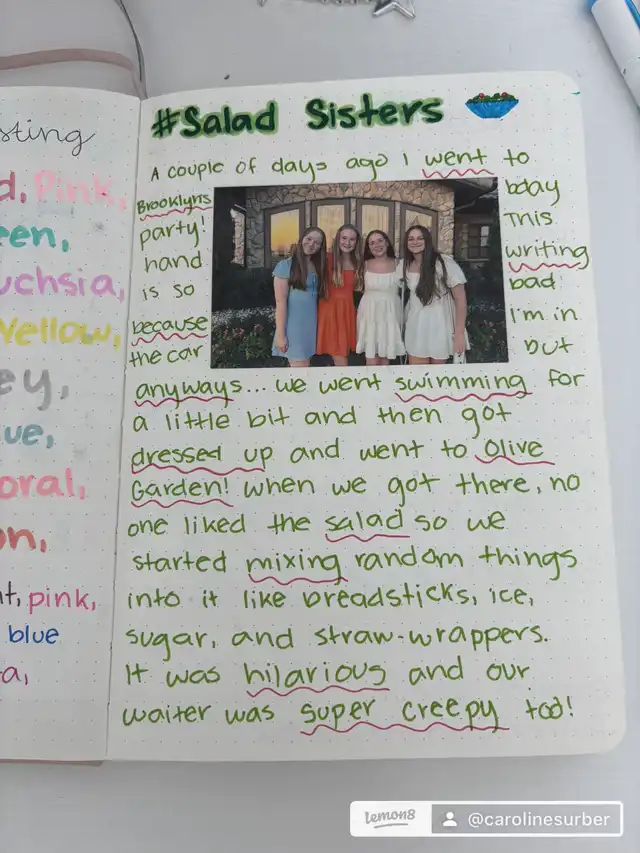 sting
d, Pink,
een,
uchsia,
Yellow,
ey,
ue,
oral,
on,
t, pink,
blue
a,
#Salad Sisters
A couple of days ago I went to
Brooklyns bday
party! This
hand writing
is so bad!
because I'm in
the car but
anyways... we went swimming for
a little bit and then got
dressed up and went to Olive
Garden! when we got there, no
one liked the salad so we
started mixing random things
into it like breadsticks, ice,
sugar, and straw-wrappers.
It was hilarious and our
waiter was super creepy too!
lemon8 @carolinesurber